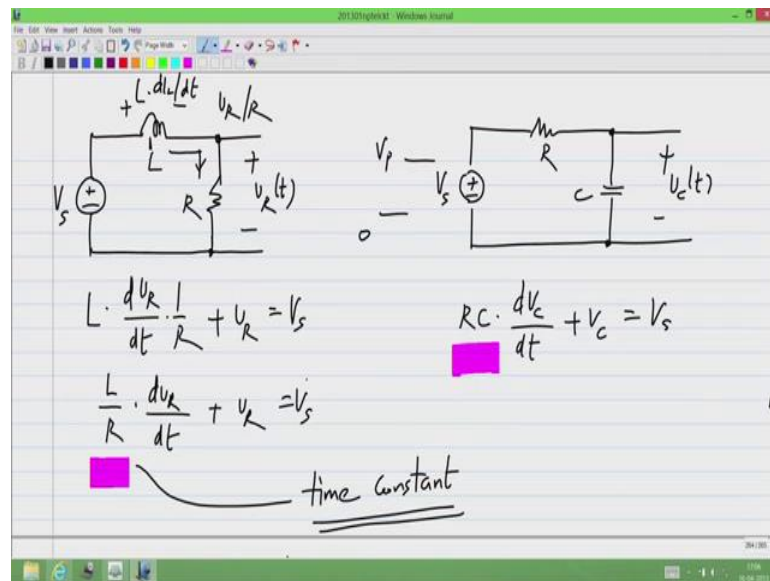 201301nptelckt - Windows Journal
File Edit View Insert Actions Tools Help
Page Width
B I
+ L·diL/dt
vR/R
Vs
+
−
L
R
+
vR(t)
−
Vp
0
Vs
+
−
R
C
+
vC(t)
−
L · dvR/dt · 1/R + vR = Vs
RC · dvC/dt + vC = Vs
L/R · dvR/dt + vR = Vs
time constant
17:06